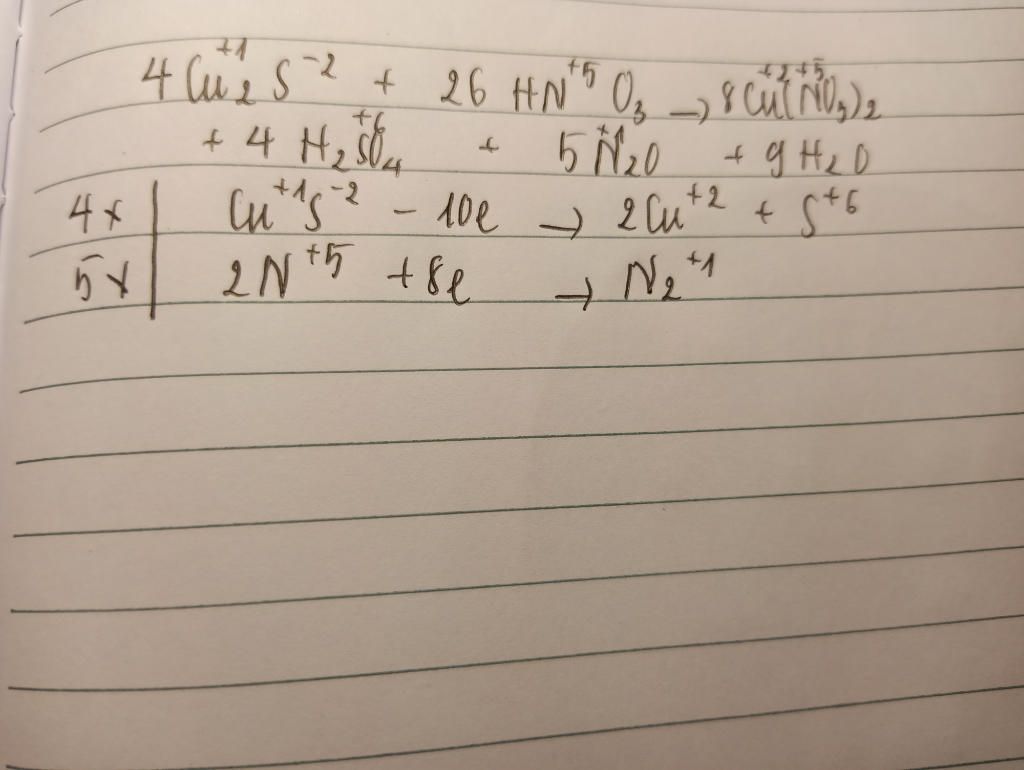 4 Cu₂⁺¹ S⁻² + 26 HN⁺⁵O₃ → 8 Cu⁺²(N⁺⁵O₃)₂
+ 4 H₂S⁺⁶O₄ + 5 N⁺¹₂O + 9 H₂O
4x | Cu⁺¹S⁻² - 10e → 2Cu⁺² + S⁺⁶
5x | 2N⁺⁵ + 8e → N₂⁺¹